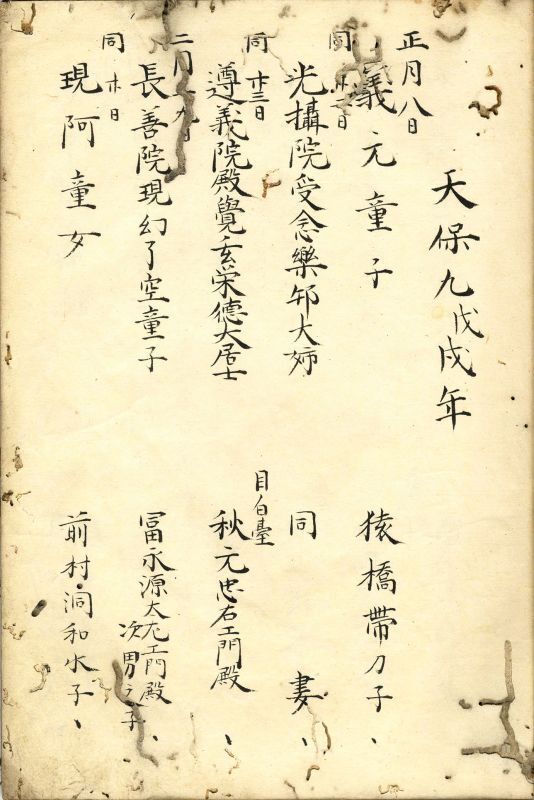 天保九戊戌年
正月八日
義元童子
猿橋帶刀子、
同
日
光攝院受念樂邦大姉
同 妻、
同 廿三日
遵義院殿覺玄栄徳大居士
目白臺
秋元忠右エ門殿、
二月
長善院現幻了空童子
冨永源太左エ門殿
次男之子、
同 廿日
現阿童女
前村洞和水子、